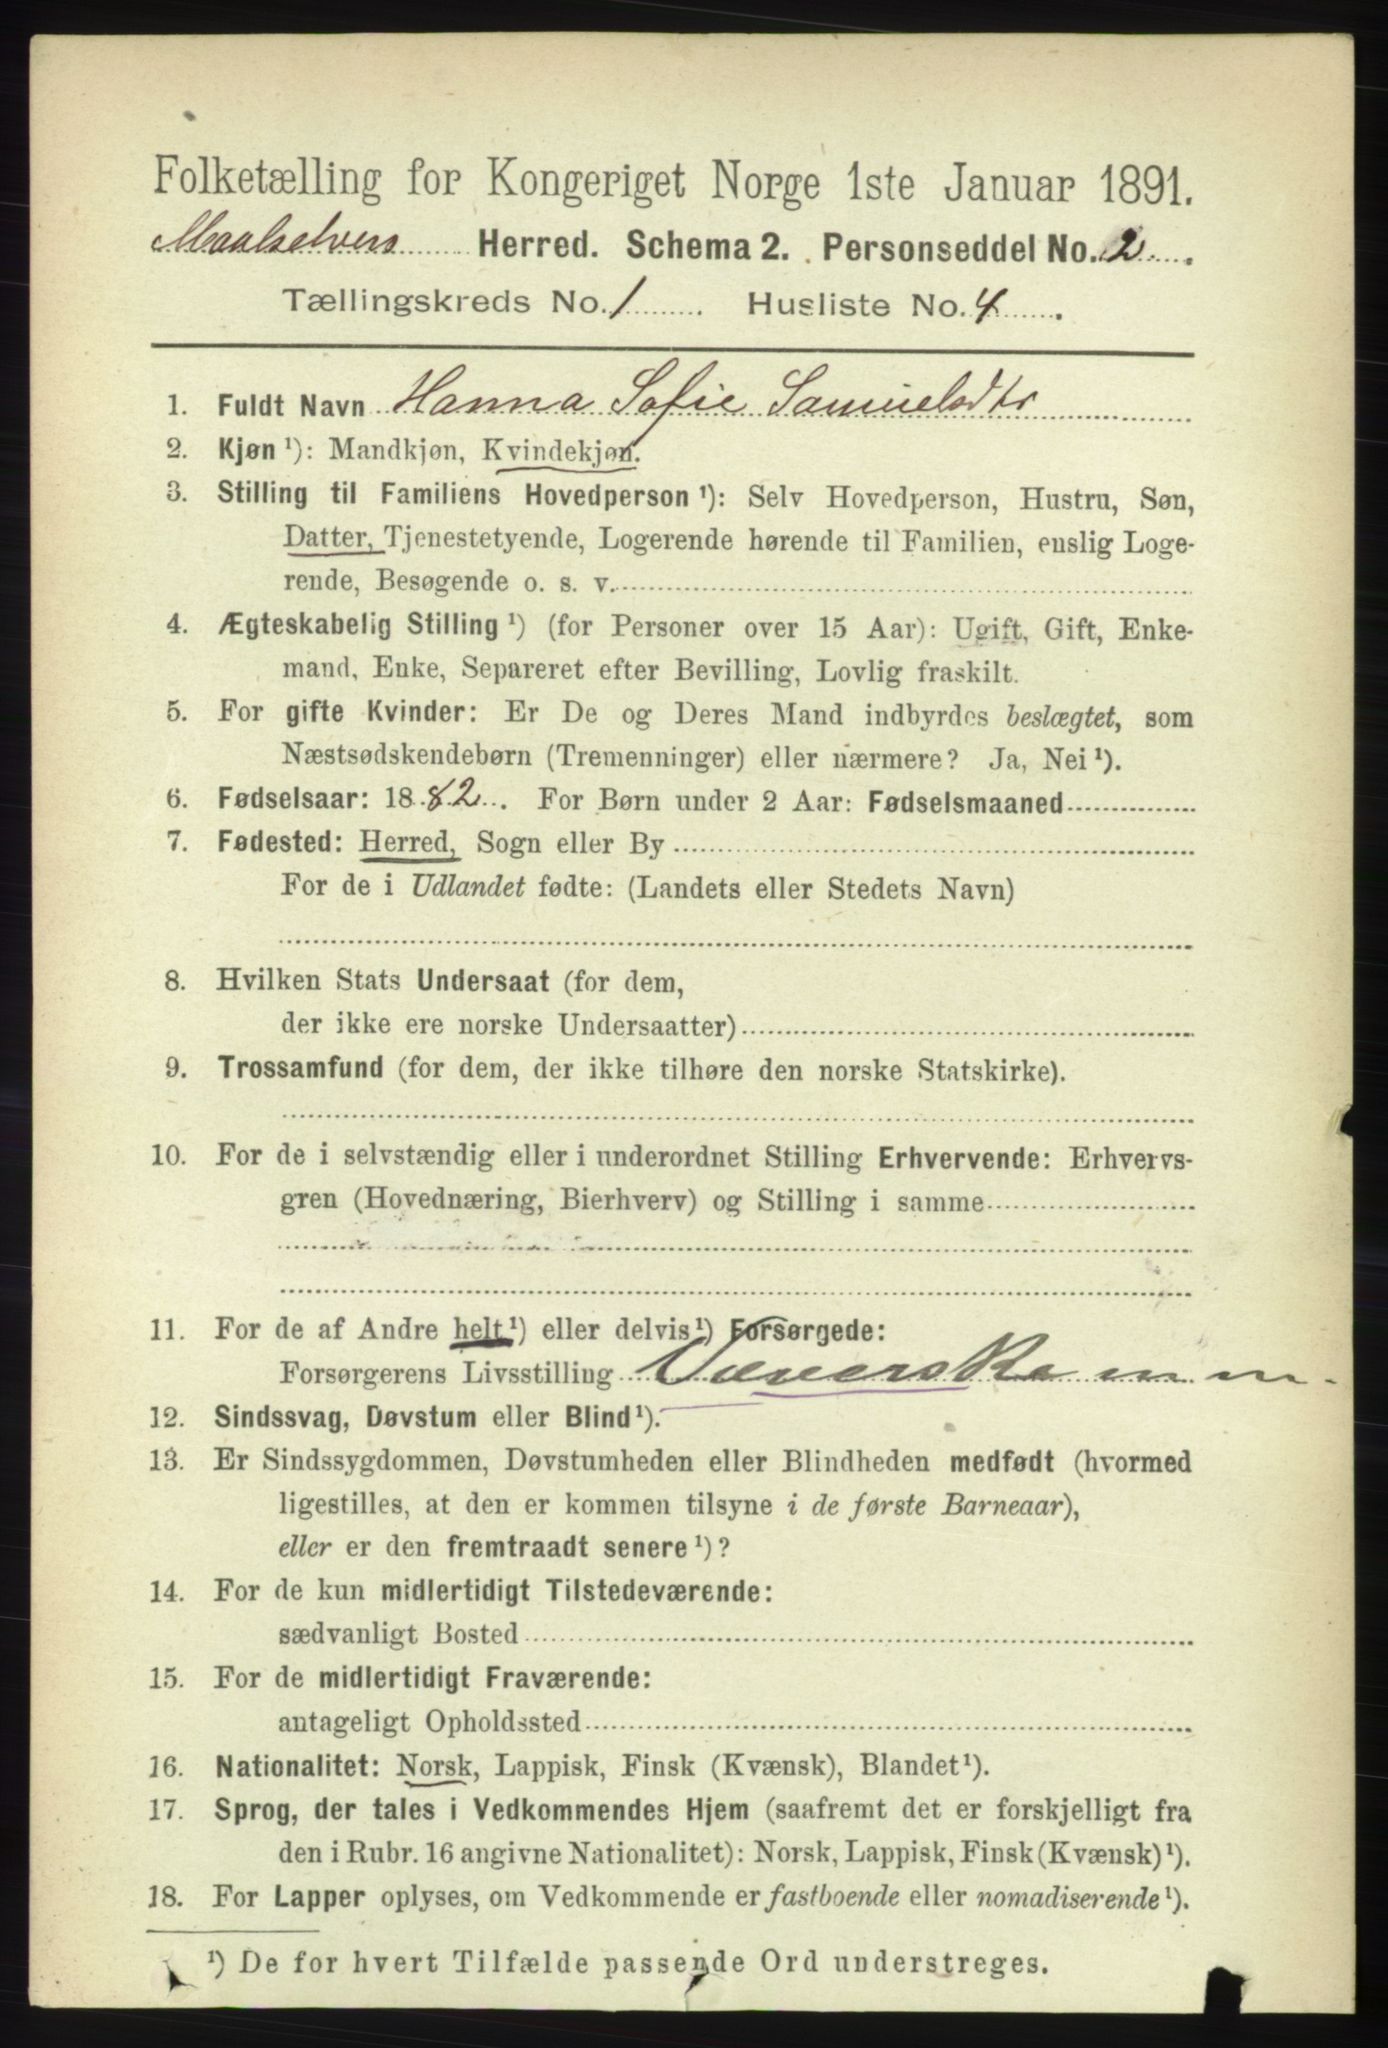 Folketælling for Kongeriget Norge 1ste Januar 1891.
Maalselvens Herred. Schema 2. Personseddel No. 2.
Tællingskreds No. 1. Husliste No. 4.
1. Fuldt Navn Hanna Sofie Samuelsdtr
2. Kjøn ¹): Mandkjøn, Kvindekjøn.
3. Stilling til Familiens Hovedperson ¹): Selv Hovedperson, Hustru, Søn,
Datter, Tjenestetyende, Logerende hørende til Familien, enslig Loge-
rende, Besøgende o. s. v.
4. Ægteskabelig Stilling ¹) (for Personer over 15 Aar): Ugift, Gift, Enke-
mand, Enke, Separeret efter Bevilling, Lovlig fraskilt.
5. For gifte Kvinder: Er De og Deres Mand indbyrdes beslægtet, som
Næstsødskendebørn (Tremenninger) eller nærmere? Ja, Nei ¹).
6. Fødselsaar: 1882. For Børn under 2 Aar: Fødselsmaaned
7. Fødested: Herred, Sogn eller By
For de i Udlandet fødte: (Landets eller Stedets Navn)
8. Hvilken Stats Undersaat (for dem,
der ikke ere norske Undersaatter)
9. Trossamfund (for dem, der ikke tilhøre den norske Statskirke).
10. For de i selvstændig eller i underordnet Stilling Erhvervende: Erhvervs-
gren (Hovednæring, Bierhverv) og Stilling i samme
11. For de af Andre helt ¹) eller delvis ¹) Forsørgede:
Forsørgerens Livsstilling Væverske
12. Sindssvag, Døvstum eller Blind ¹).
13. Er Sindssygdommen, Døvstumheden eller Blindheden medfødt (hvormed
ligestilles, at den er kommen tilsyne i de første Barneaar),
eller er den fremtraadt senere ¹)?
14. For de kun midlertidigt Tilstedeværende:
sædvanligt Bosted
15. For de midlertidigt Fraværende:
antageligt Opholdssted
16. Nationalitet: Norsk, Lappisk, Finsk (Kvænsk), Blandet ¹).
17. Sprog, der tales i Vedkommendes Hjem (saafremt det er forskjelligt fra
den i Rubr. 16 angivne Nationalitet): Norsk, Lappisk, Finsk (Kvænsk) ¹).
18. For Lapper oplyses, om Vedkommende er fastboende eller nomadiserende ¹).
¹) De for hvert Tilfælde passende Ord understreges.